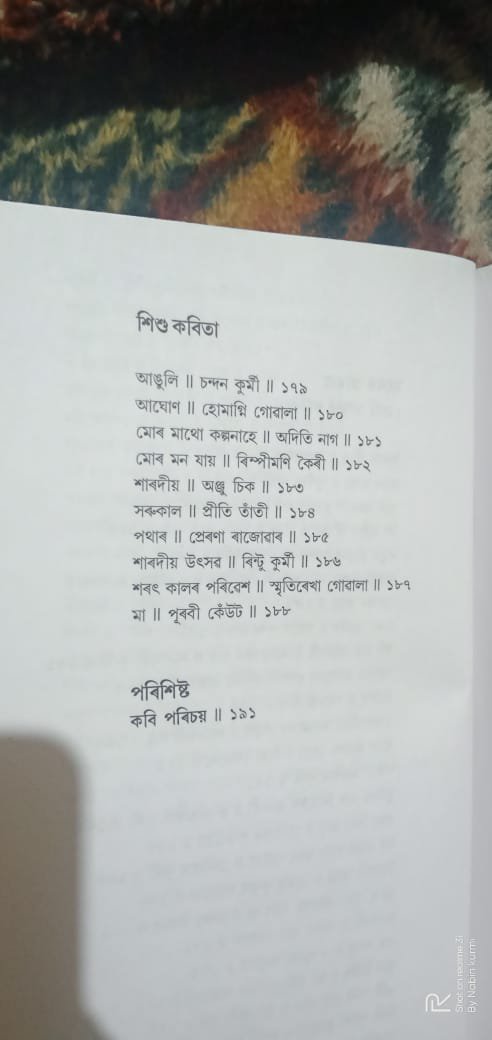 শিশু কবিতা
আঙুলি ॥ চন্দন কুৰ্মী ॥ ১৭৯
আঘোণ ॥ হোমাগ্নি গোৱালা ॥ ১৮০
মোৰ মাথো কল্পনাহে ॥ অদিতি নাগ ॥ ১৮১
মোৰ মন যায় ॥ ৰিম্পীমণি কৈৰী ॥ ১৮২
শাৰদীয় ॥ অঞ্জু চিক ॥ ১৮৩
সৰুকাল ॥ প্ৰীতি তাঁতী ॥ ১৮৪
পথাৰ ॥ প্ৰেৰণা ৰাজোৱাৰ ॥ ১৮৫
শাৰদীয় উৎসৱ ॥ ৰিন্টু কুৰ্মী ॥ ১৮৬
শৰৎ কালৰ পৰিৱেশ ॥ স্মৃতিৰেখা গোৱালা ॥ ১৮৭
মা ॥ পূৰবী কেঁউট ॥ ১৮৮
পৰিশিষ্ট
কবি পৰিচয় ॥ ১৯১
Shot on realme 3i
By Nabin kurmi